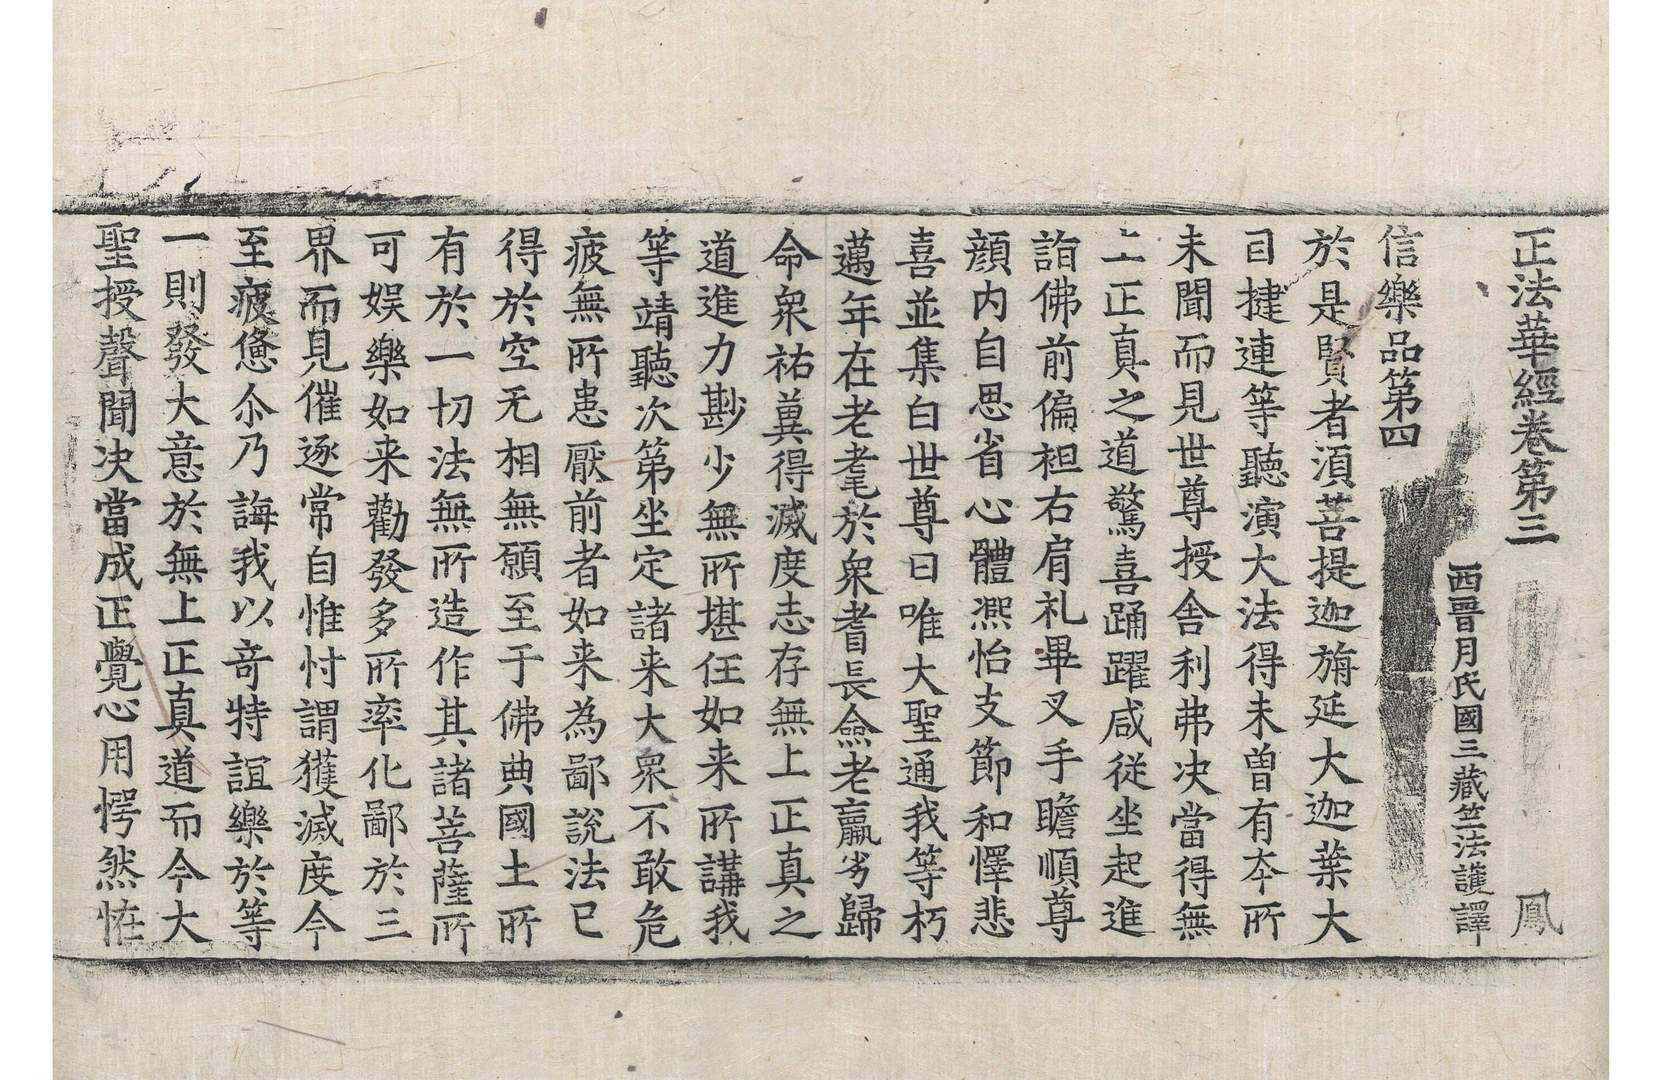 正法華經卷第三　鳳
西晉月氏國三藏竺法護譯
信樂品第四
於是賢者湏菩提迦旃延大迦葉大
目揵連等聽演大法得未曾有夲所
未聞而見世尊授舍利弗决當得無
上正真之道驚喜踊躍咸従坐起進
詣佛前偏袒右肩礼畢叉手瞻順尊
顔内自思省心體熈怡支節和懌悲
喜並集白世尊曰唯大聖通我等朽
邁年在老耄於衆耆長僉老羸劣歸
命衆祐冀得滅度志存無上正真之
道進力尠少無所堪任如来所講我
等靖聽次第坐定諸来大衆不敢危
疲無所患厭前者如来為鄙說法已
得於空无相無願至于佛典國土所
有於一切法無所造作其諸菩薩所
可娱樂如来勸發多所率化鄙於三
界而見催逐常自惟忖謂獲滅度今
至疲憊尒乃誨我以竒特誼樂於等
一則發大意於無上正真道而今大
聖授聲聞决當成正覺心用愕然恠